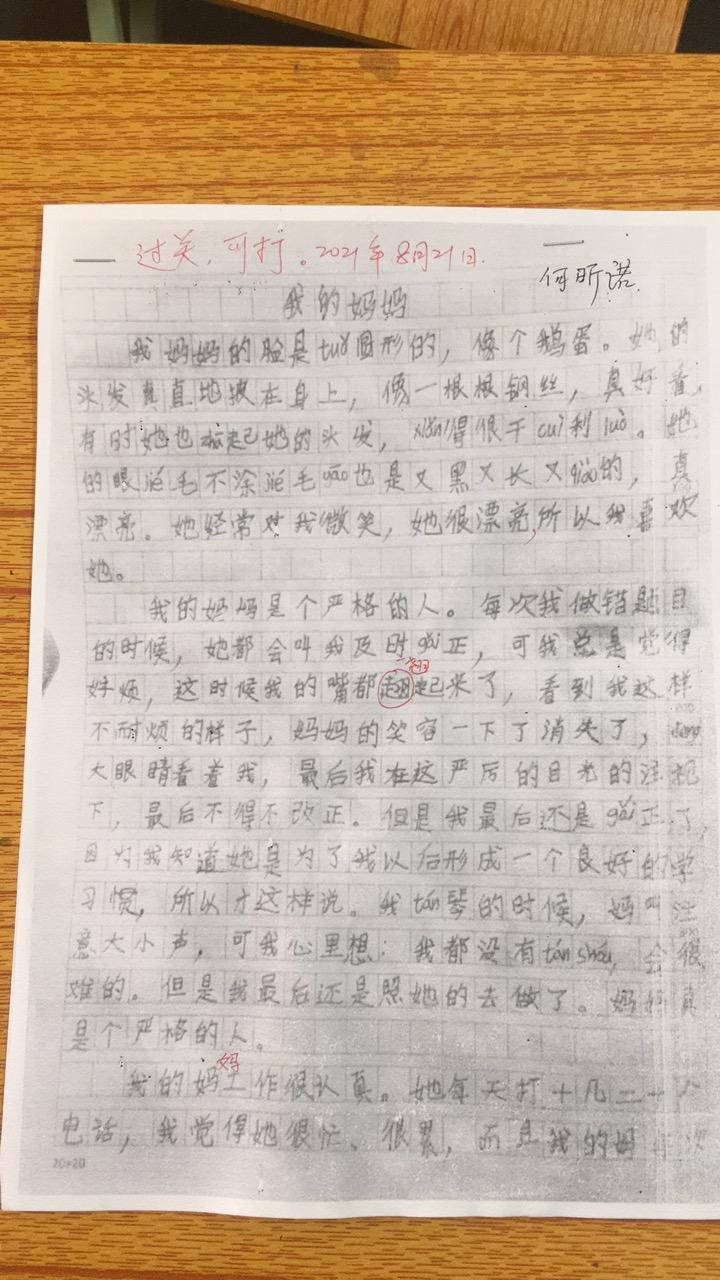 过关,可打。2021年8月21日.
何昕诺
我的妈妈
我妈妈的脸是tuǒ圆形的,像个鹅蛋。她的
头发真直地披在身上,像一根根钢丝,真好看,
有时她也扎起她的头发,xiǎn得很干cuì利luò。她
的眼jié毛不涂jié毛gāo也是又黑又长又qiào的,真
漂亮。她经常对我微笑,她很漂亮,所以我喜欢
她。
我的妈妈是个严格的人。每次我做错题目
的时候,她都会叫我及时gǎi正,可我总是觉得
好烦,这时候我的嘴都翘起来了,看到我这样
翘
不耐烦的样子,妈妈的笑容一下了消失了,dèng
大眼睛看着我,最后我在这严厉的目光的注视
下,最后不得不改正。但是我最后还是gǎi正了,
因为我知道她是为了我以后形成一个良好的学
习惯,所以才这样说。我tán琴的时候,妈叫注
意大小声,可我心里想:我都没有tán shóu,会很
难的。但是我最后还是照她的去做了。妈妈真
是个严格的人。
妈
我的妈工作很认真。她每天打十几二十个
电话,我觉得她很忙、很累,而且我的妈每次
20×20